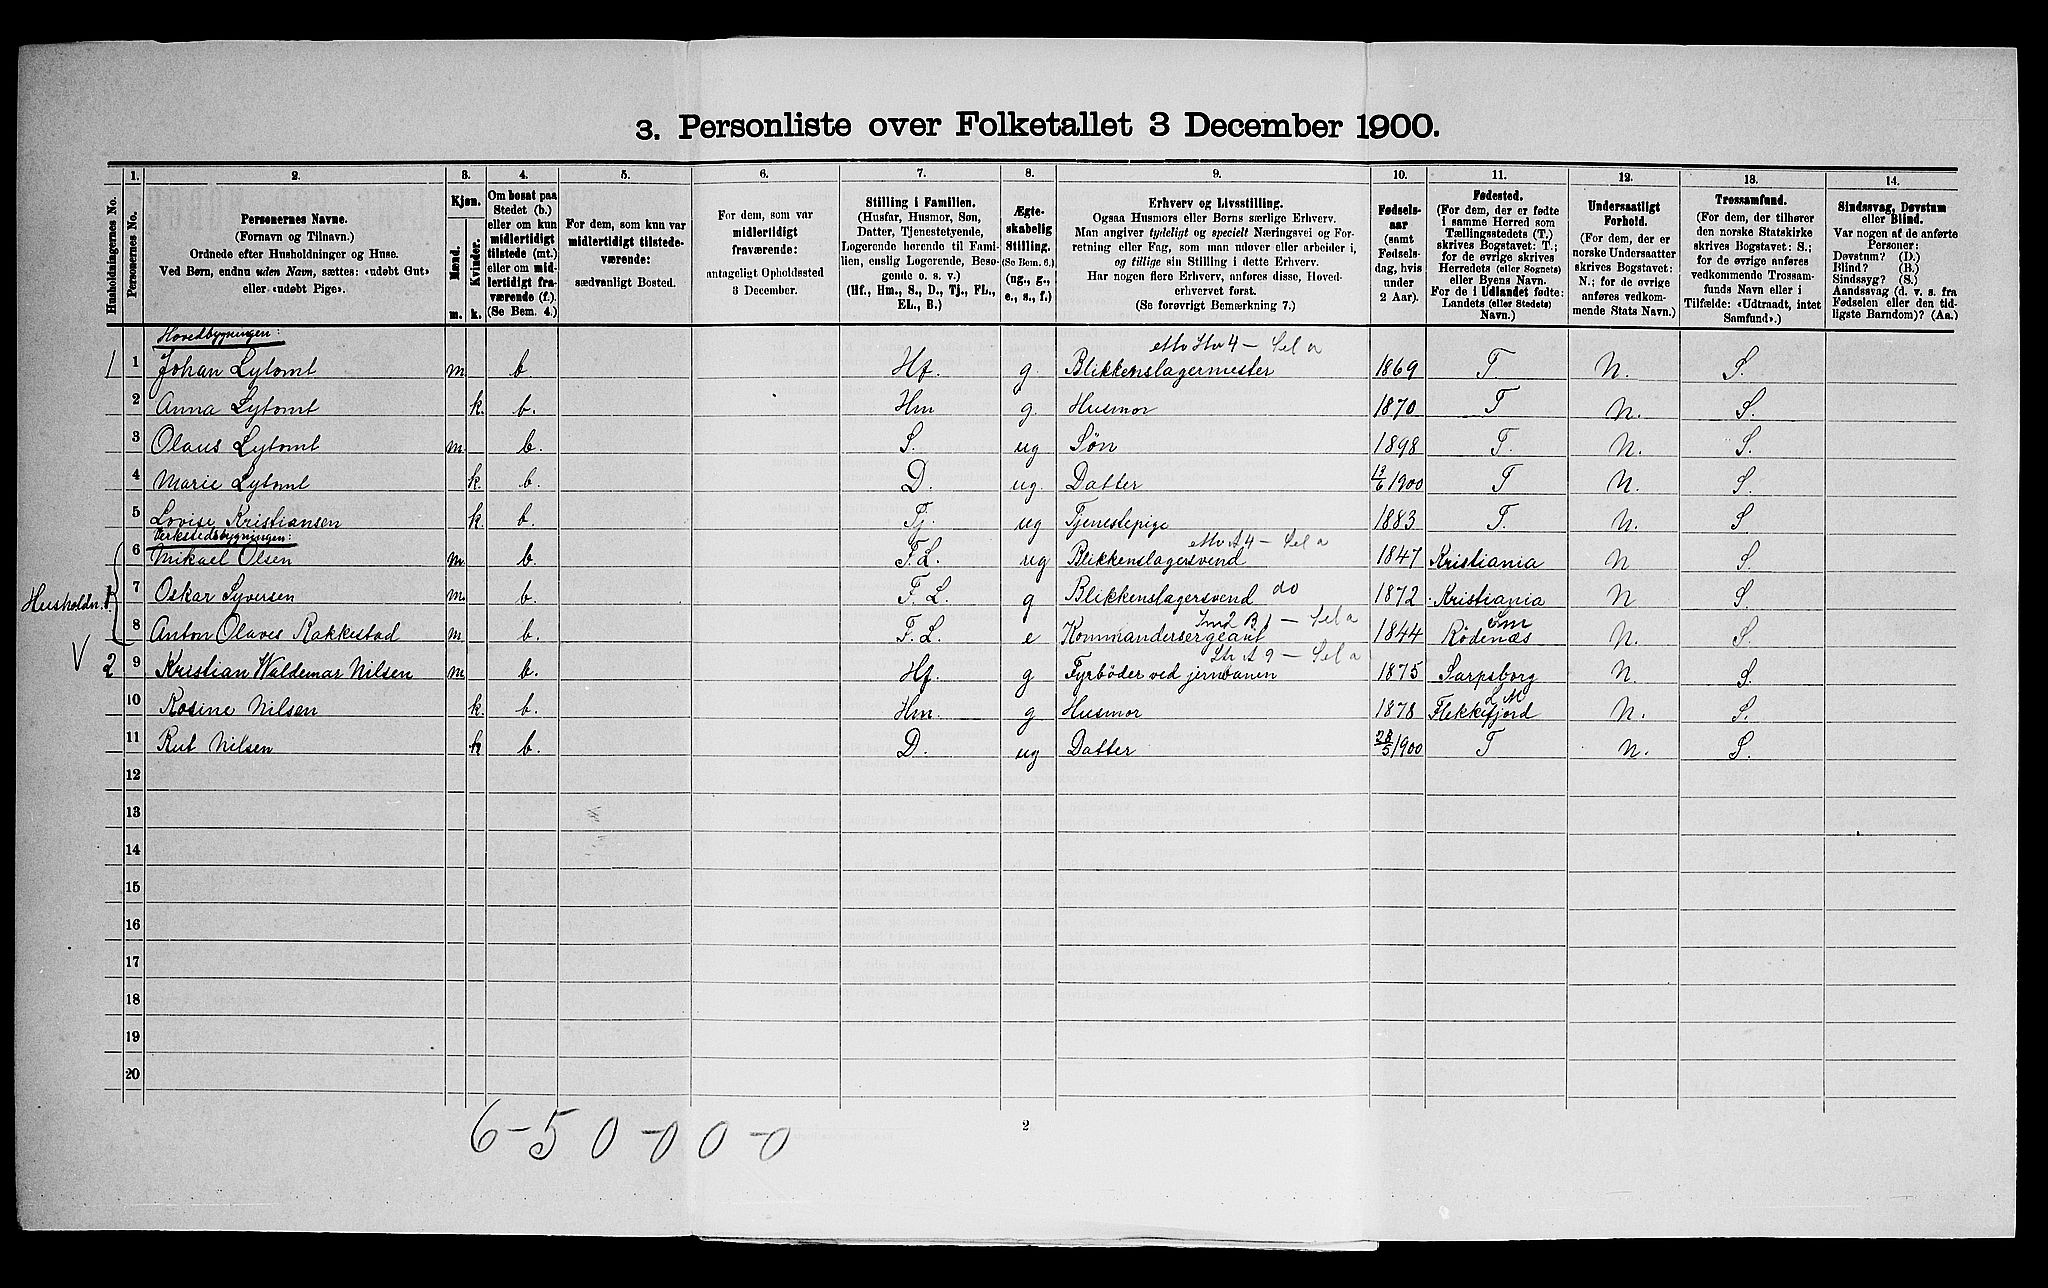 3. Personliste over Folketallet 3 December 1900.
Husholdningernes No.
1.
Personernes No.
2.
Personernes Navne.
(Fornavn og Tilnavn.)
Ordnede efter Husholdninger og Huse.
Ved Børn, endnu uden Navn, sættes: «udøbt Gut»
eller «udøbt Pige».
3.
Kjøn.
Mænd.
Kvinder.
m. k.
4.
Om bosat paa
Stedet (b.)
eller om kun
midlertidigt
tilstede (mt.)
eller om mid-
lertidigt fra-
værende (f.)
(Se Bem. 4.)
5.
For dem, som kun var
midlertidigt tilstede-
værende:
sædvanligt Bosted.
6.
For dem, som var
midlertidigt
fraværende:
antageligt Opholdssted
3 December.
7.
Stilling i Familien.
(Husfar, Husmor, Søn,
Datter, Tjenestetyende,
Logerende hørende til Fami-
lien, enslig Logerende, Besø-
gende o. s. v.)
(Hf., Hm., S., D., Tj., FL.,
EL., B.)
8.
Ægte-
skabelig
Stilling.
(Se Bem. 6.)
(ug., g.,
e., s., f.)
9.
Erhverv og Livsstilling.
Ogsaa Husmors eller Børns særlige Erhverv.
Man angiver tydeligt og specielt Næringsvei og For-
retning eller Fag, som man udover eller arbeider i,
og tillige sin Stilling i dette Erhverv.
Har nogen flere Erhverv, anføres disse, Hoved-
erhvervet først.
(Se forøvrigt Bemærkning 7.)
10.
Fødsels-
aar
(samt
Fødsels-
dag, hvis
under
2 Aar).
11.
Fødested.
(For dem, der er fødte
i samme Herred som
Tællingsstedets (T.)
skrives Bogstavet: T.;
for de øvrige skrives
Herredets (eller Sognets)
eller Byens Navn.
For de i Udlandet fødte:
Landets (eller Stedets)
Navn.)
12.
Undersaatligt
Forhold.
(For dem, der er
norske Undersaatter
skrives Bogstavet:
N.; for de øvrige
anføres vedkom-
mende Stats Navn.)
13.
Trossamfund.
(For dem, der tilhører
den norske Statskirke
skrives Bogstavet: S.;
for de øvrige anføres
vedkommende Trossam-
funds Navn eller i
Tilfælde: «Udtraadt, intet
Samfund».)
14.
Sindssvag, Døvstum
eller Blind.
Var nogen af de anførte
Personer:
Døvstum? (D.)
Blind? (B.)
Sindssyg? (S.)
Aandssvag (d. v. s. fra
Fødselen eller den tid-
ligste Barndom)? (Aa.)
Hovedbygningen:
1 1 Johan Lytomt m. b. Hf. g. Blikkenslagermester 1869 T. N. S.
2 Anna Lytomt k. b. Hm g. Husmor 1870 T N. S.
3 Olaus Lytomt m. b. S. ug Søn 1898 T. N. S.
4 Marie Lytomt k. b. D. ug. Datter 13/6 1900 T N. S.
5 Lovise Kristiansen k. b. Tj. ug Tjenestepige 1883 T. N. S
Verkstedsbygningen:
6 Mikael Olsen m. b. F.L. ug Blikkenslagersvend 1847 Kristiania N S.
Husholdn. 1
7 Oskar Syversen m. b. F.L. g Blikkenslagersvend do 1872 Kristiania N S
8 Anton Olaves Rakkestad m b. F.L. e Kommandersergeant 1844 Rödenæs N. S.
V 2 9 Kristian Waldemar Nilsen m b. Hf. g Fyrbøder ved jernbanen 1875 Sarpsborg N. S.
10 Rosine Nilsen k. b. Hm. g Husmor 1878 Flekkefjord N. S.
11 Rut Nilsen k b. D. ug Datter 28/5 1900 T N. S.
12
13
14
15
16
17
18
19
20
6-5 0-0 0-0
2